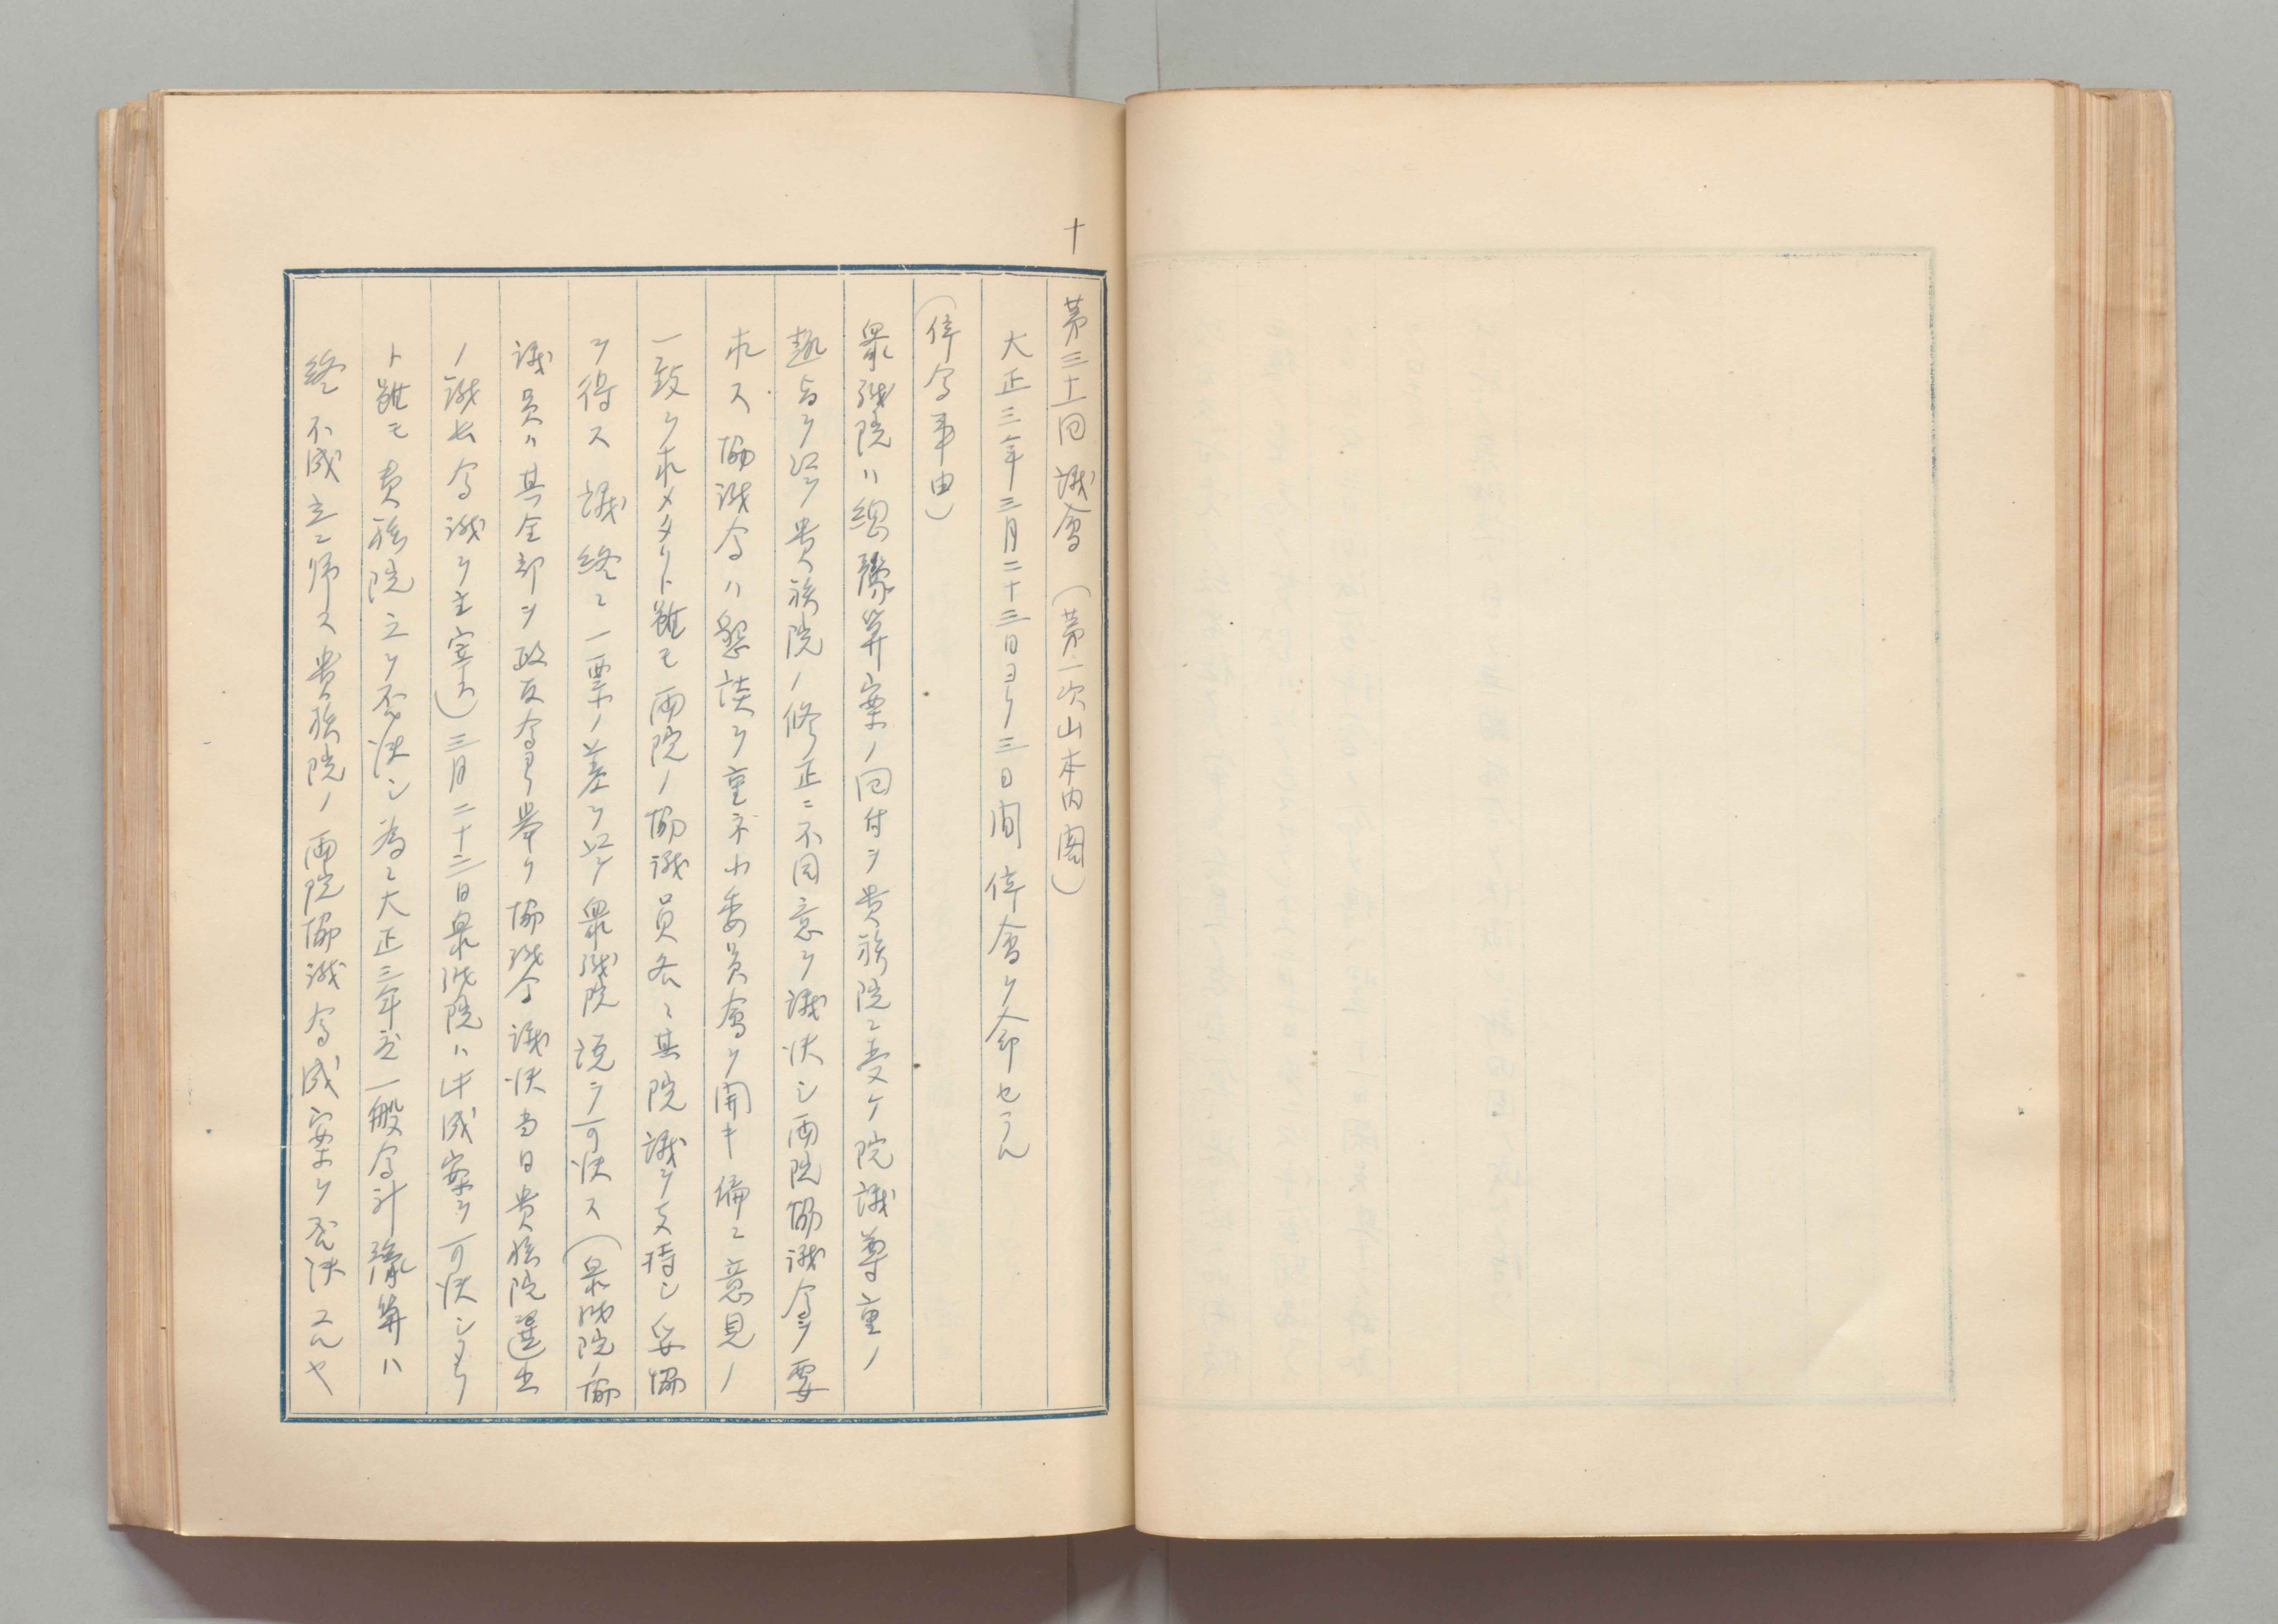 十
第三十一回議會（第一次山本内閣）
大正三年三月二十三日ヨリ三日間停會ヲ命セラル
（停会事由）
衆議院ハ總豫算案ノ回付ヲ貴族院ニ受ケ院議尊重ノ
趣旨ヲ以テ貴族院ノ修正ニ不同意ヲ議決シ両院協議会ヲ要
求ス協議会ハ懇談ヲ重ネ小委員會ヲ開キ偏ニ意見ノ
一致ヲ求メタリト雖モ両院ノ協議員各〻其院議ヲ支持シ妥協
ヲ得ス議終ニ一票ノ差ヲ以テ衆議院説ヲ可決ス（衆議院ノ協
議員ハ其全部ヲ政友会ヨリ挙ケ協議会議決当日貴族院選出
ノ議長会議ヲ主宰ス）三月二十三日衆議院ハ此成案ヲ可決シタリ
ト雖モ貴族院之ヲ否決シ為ニ大正三年度一般会計豫算ハ
終 不成立ニ帰ス貴族院ノ両院協議会成案ヲ否決スルヤ